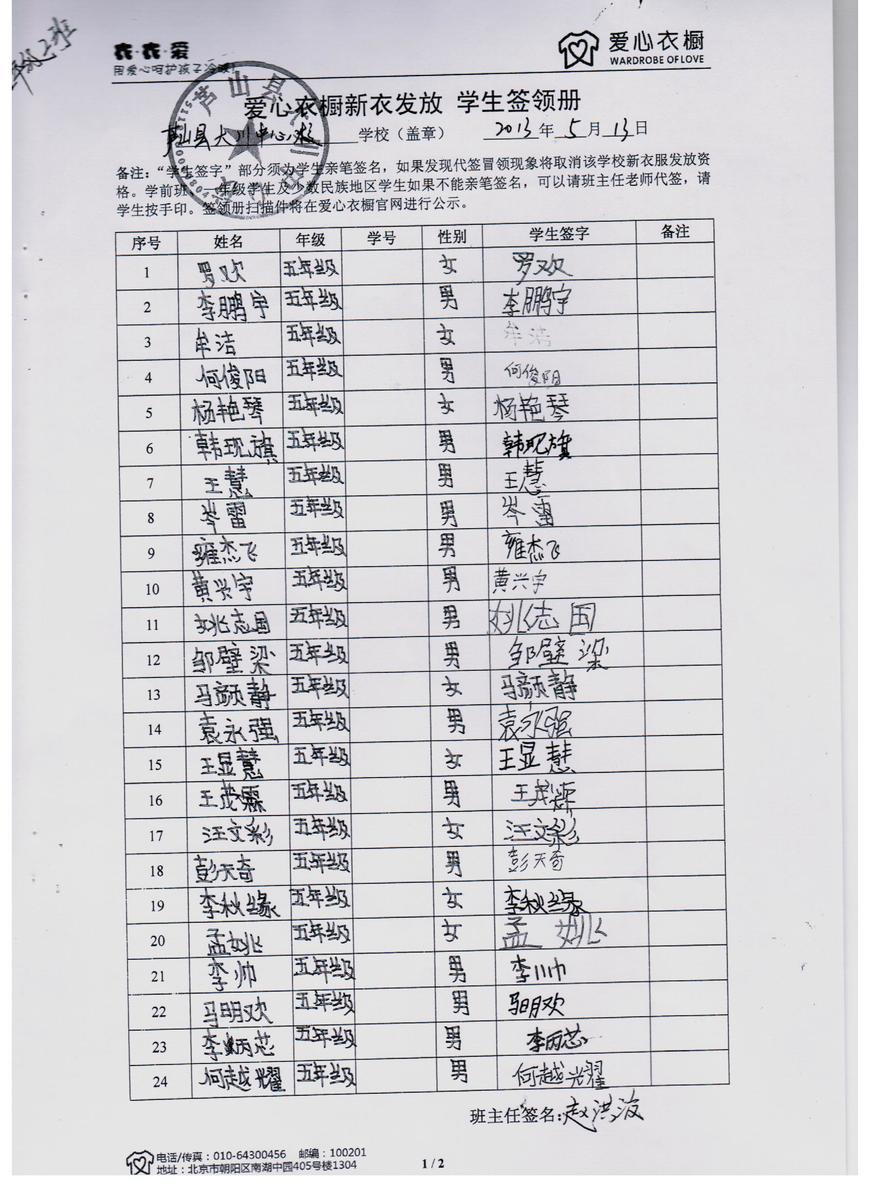 年级2班
衣·衣·爱
用爱心呵护孩子冷暖！
爱心衣橱
WARDROBE OF LOVE
爱心衣橱新衣发放 学生签领册
芦山县大川中心小校 学校（盖章） 2013年5月13日
备注：“学生签字”部分须为学生亲笔签名，如果发现代签冒领现象将取消该学校新衣服发放资
格。学前班、一年级学生及少数民族地区学生如果不能亲笔签名，可以请班主任老师代签，请
学生按手印。签领册扫描件将在爱心衣橱官网进行公示。
序号 姓名 年级 学号 性别 学生签字 备注
1 罗欢 五年级 女 罗欢
2 李鹏宇 五年级 男 李鹏宇
3 牟洁 五年级 女 牟洁
4 何俊阳 五年级 男 何俊阳
5 杨艳琴 五年级 女 杨艳琴
6 韩现旗 五年级 男 韩现旗
7 王慧 五年级 男 王慧
8 岑雷 五年级 男 岑雷
9 雍杰飞 五年级 男 雍杰飞
10 黄兴宇 五年级 男 黄兴宇
11 姚志国 五年级 男 姚志国
12 邹壁梁 五年级 男 邹壁梁
13 马颜静 五年级 女 马颜静
14 袁永强 五年级 男 袁永强
15 王显慧 五年级 女 王显慧
16 王茂霖 五年级 男 王茂霖
17 汪文彩 五年级 女 汪文彩
18 彭天奇 五年级 男 彭天奇
19 李秋缘 五年级 女 李秋缘
20 孟姚 五年级 女 孟姚
21 李帅 五年级 男 李帅
22 马明欢 五年级 男 马明欢
23 李炳芯 五年级 男 李丙芯
24 何越耀 五年级 男 何越耀
班主任签名：赵洪波
电话/传真：010-64300456 邮编：100201
地址：北京市朝阳区南湖中园405号楼1304
1 / 2